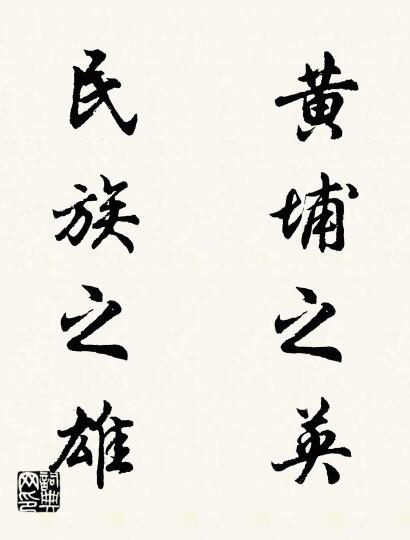 黄埔之英
民族之雄
詞典网印